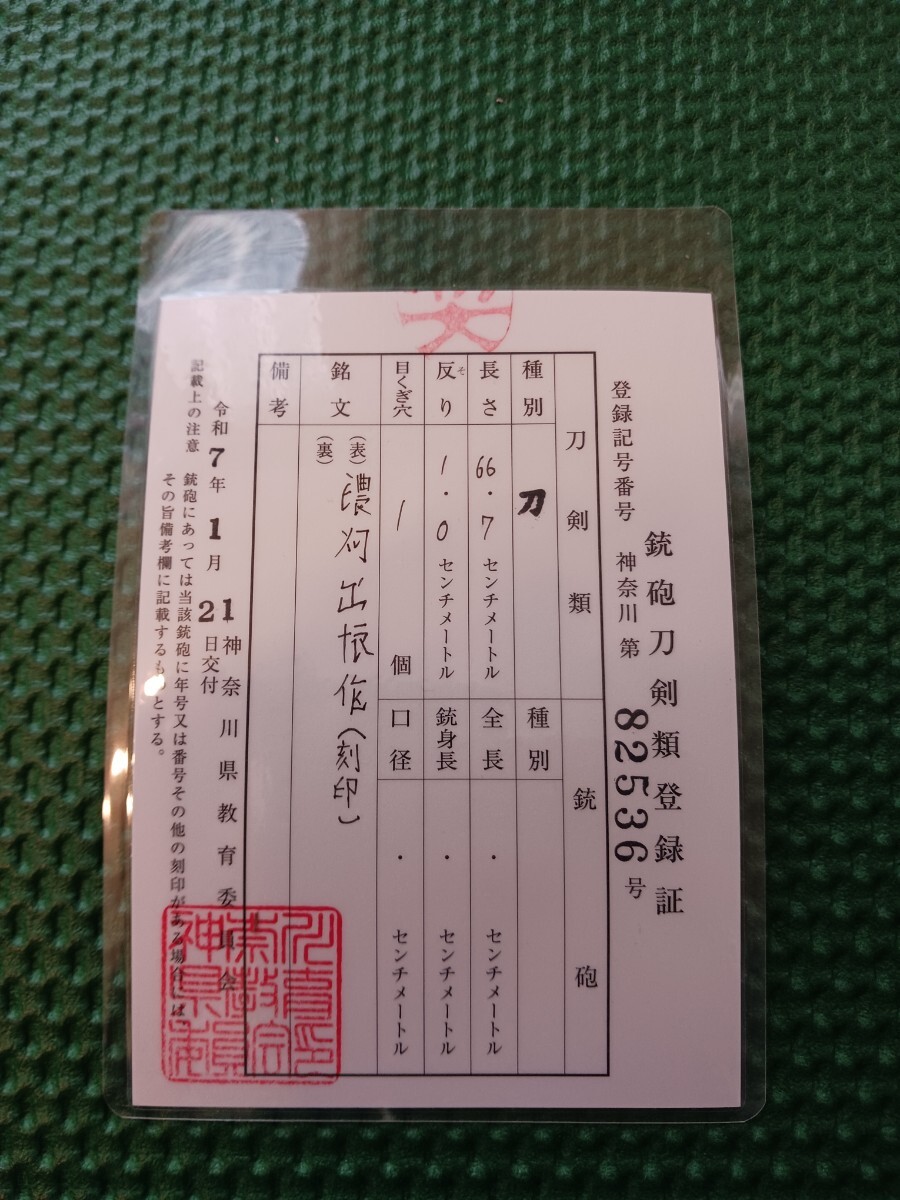 銃砲刀剣類登録証
登録記号番号 神奈川 第82536号
刀剣類
種別 刀
長さ 66.7センチメートル
反り 1.0センチメートル
そ
目くぎ穴 1個
銃砲
種別
全長 ．センチメートル
銃身長 ．センチメートル
口径 ．センチメートル
銘文
(表) 濃州 作(刻印)
(裏)
備考
令和7年1月21日交付
神奈川県教育委員会
記載上の注意 銃砲にあっては当該銃砲に年号又は番号その他の刻印がある場合には、
その旨備考欄に記載するものとする。